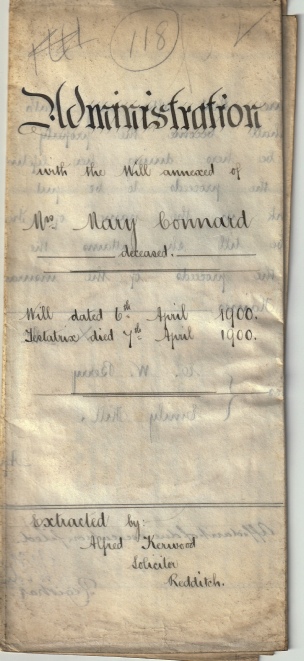 118
Administration
with the Will annexed of
Mrs Mary Connard
deceased.
Will dated 6th April 1900.
Testatrix died 7th April 1900.
Extracted by:
Alfred Kerwood
Solicitor
Redditch.